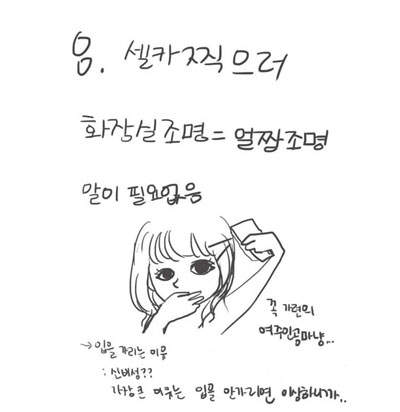 응. 셀카 찍으러
화장실조명 = 얼짱조명
말이 필요없음
꼭 가련의
여주인공마냥...
→ 입을 가리는 이유
: 신비성??
가장 큰 이유는 입을 안가리면 이상하니까..